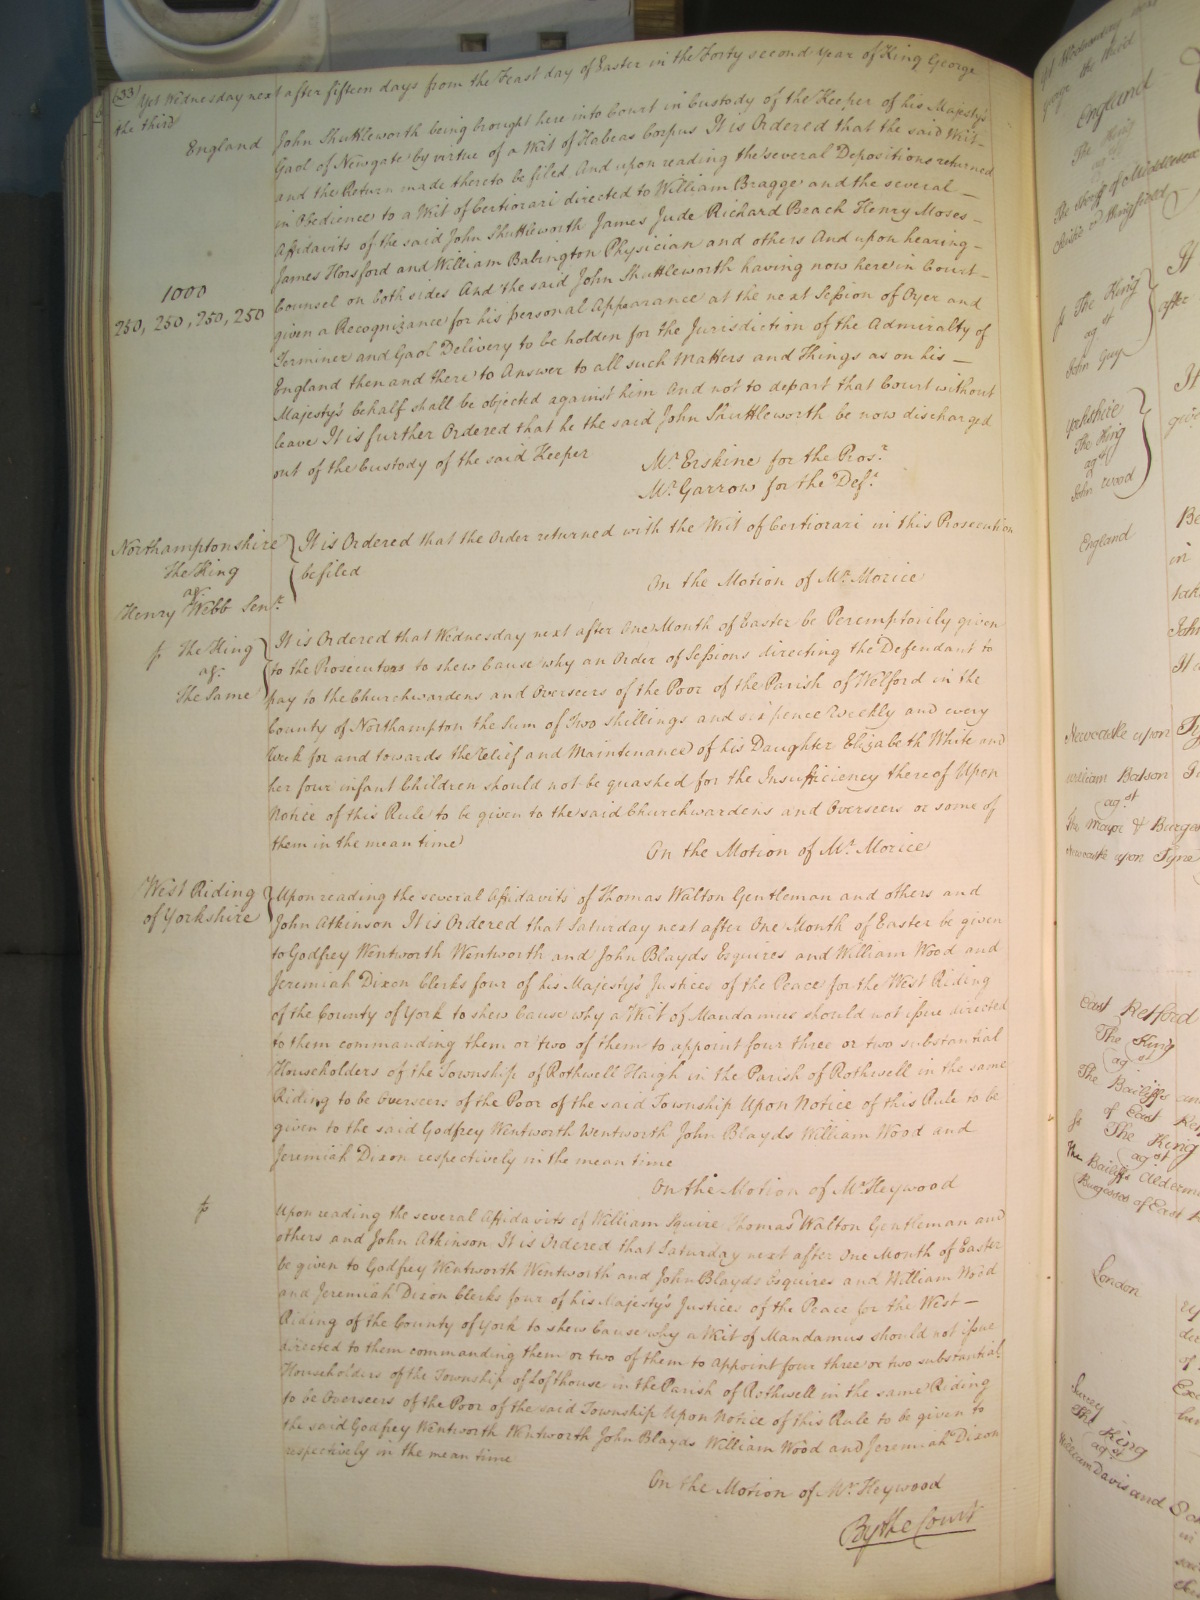 (33) Yet Wednesday next after fifteen days from the Feast day of Easter in the Forty second Year of King George
the third
England
John Shuttleworth being brought here into Court in Custody of the Keeper of his Majesty's
Gaol of Newgate by virtue of a Writ of Habeas Corpus It is Ordered that the said Writ
and the Return made thereto be filed And upon reading the several Depositions returned
in Obedience to a Writ of Certiorari directed to William Bragge and the several
Affidavits of the said John Shuttleworth James Jude Richard Beach Henry Moses
James Horsford and William Babington Physician and others And upon hearing
Counsel on both sides And the said John Shuttleworth having now here in Court
given a Recognizance for his personal Appearance at the next Session of Oyer and
Terminer and Gaol Delivery to be holden for the Jurisdiction of the Admiralty of
England then and there to Answer to all such Matters and Things as on his
Majesty's behalf shall be objected against him And not to depart that Court without
leave It is further Ordered that he the said John Shuttleworth be now discharged
out of the Custody of the said Keeper
1000
250, 250, 250, 250
Mr. Erskine for the Prosr.
Mr. Garrow for the Deft.
Northamptonshire
The King
agt.
Henry Webb Senr.
It is Ordered that the Order returned with the Writ of Certiorari in this Prosecution
be filed
On the Motion of Mr. Morice
The King
agt.
The Same
It is Ordered that Wednesday next after One Month of Easter be Peremptorily given
to the Prosecutors to shew Cause why an Order of Sessions directing the Defendant to
pay to the Churchwardens and Overseers of the Poor of the Parish of Welford in the
County of Northampton the Sum of Two shillings and six pence Weekly and every
Week for and towards the relief and Maintenance of his Daughter Elizabeth White and
her four infant Children should not be quashed for the Insufficiency thereof Upon
Notice of this Rule to be given to the said Churchwardens and Overseers or some of
them in the mean time
On the Motion of Mr. Morice
West Riding
of Yorkshire
Upon reading the several Affidavits of Thomas Walton Gentleman and others and
John Atkinson It is Ordered that Saturday next after One Month of Easter be given
to Godfrey Wentworth Wentworth and John Blayds Esquires and William Wood and
Jeremiah Dixon Clerks four of his Majesty's Justices of the Peace for the West Riding
of the County of York to shew Cause why a Writ of Mandamus should not issue directed
to them commanding them or two of them to appoint four three or two substantial
Householders of the Township of Rothwell Haigh in the Parish of Rothwell in the same
Riding to be overseers of the Poor of the said Township Upon Notice of this Rule to be
given to the said Godfrey Wentworth Wentworth John Blayds William Wood and
Jeremiah Dixon respectively in the mean time
On the Motion of Mr. Heywood
Upon reading the several Affidavits of William Squire Thomas Walton Gentleman and
others and John Atkinson It is Ordered that Saturday next after One Month of Easter
be given to Godfrey Wentworth Wentworth and John Blayds Esquires and William Wood
and Jeremiah Dixon Clerks four of his Majesty's Justices of the Peace for the West
Riding of the County of York to shew Cause why a Writ of Mandamus should not issue
directed to them commanding them or two of them to appoint four three or two substantial
Householders of the Township of Lofthouse in the Parish of Rothwell in the same Riding
to be Overseers of the Poor of the said Township Upon Notice of this Rule to be given to
the said Godfrey Wentworth Wentworth John Blayds William Wood and Jeremiah Dixon
respectively in the mean time
On the Motion of Mr. Heywood
By the Court
Yet Wednesday
George the third
England
The King
agst
The Sheriff of Middlesex
The King
agst
John Guy
Yorkshire
The King
agst
John Wood
England
Newcastle upon
William Batson
agst
The Mayor & Burge
Newcastle upon Tyne
East Retford
The King
agst
The Bailiffs an
of East
The King
agst
The Bailiffs Alderm
Burgesses of East
London
Surrey
The King
agst
William Davis and